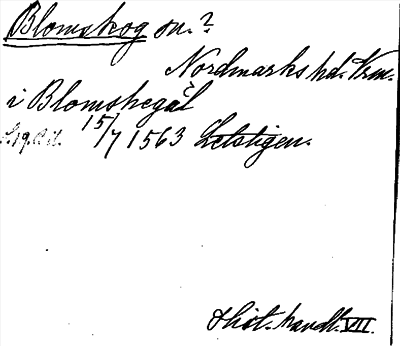 Blomskog sn.?
Nordmarks hd. Vrm.
i Blomskegål
15/7 1563 Letstigen.
Hist. handl. VII.